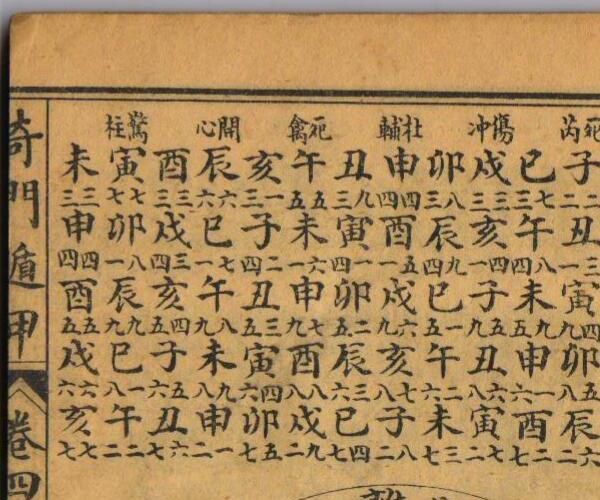 死芮子二二丑三一寅四九卯五八辰六二
巳七三午八四未九五申一六酉二七
傷冲戌三三亥四一子五九丑六八寅七二
卯八三辰九四巳一五午二六未三七
杜輔申四四酉五一戌六九亥七八子八二
丑九三寅一四卯二五辰三六巳四七
死禽午五五未六一申七九酉八八戌九二
亥一三子二四丑三五寅四六卯五七
開心辰六六巳七一午八九未九八申一二
酉三三戌三四亥四五子五六丑六七
驚柱寅七七卯八一辰九九巳一八午二二
未三三申四四酉五五戌六六亥七七
奇門遁甲
卷四